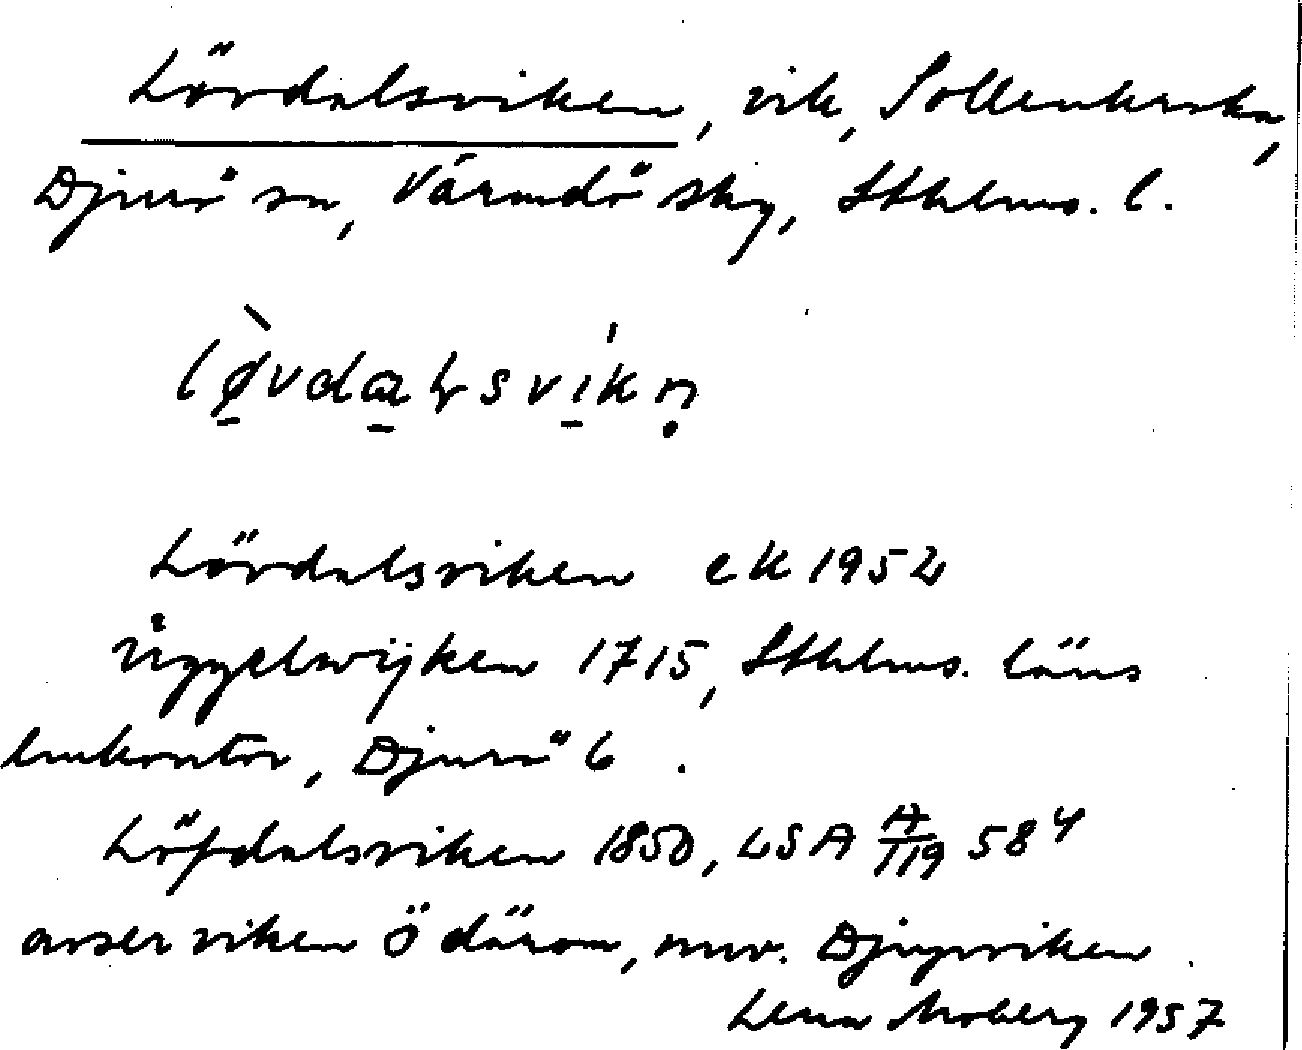 Lövdalsviken, vik, Sollenkroka,
Djurö sn, Värmdö skg, Sthlms. l.
lø̀vdaɽsvíkṇ
Lövdalsviken ek 1952
Uggelwijken 1715, Sthlms. läns
lmkontor, Djurö 6.
Löfdalsviken 1850, LSA A/119 58 4
avser viken Ö därom, nuv. Djupviken.
Lena Moberg 1957